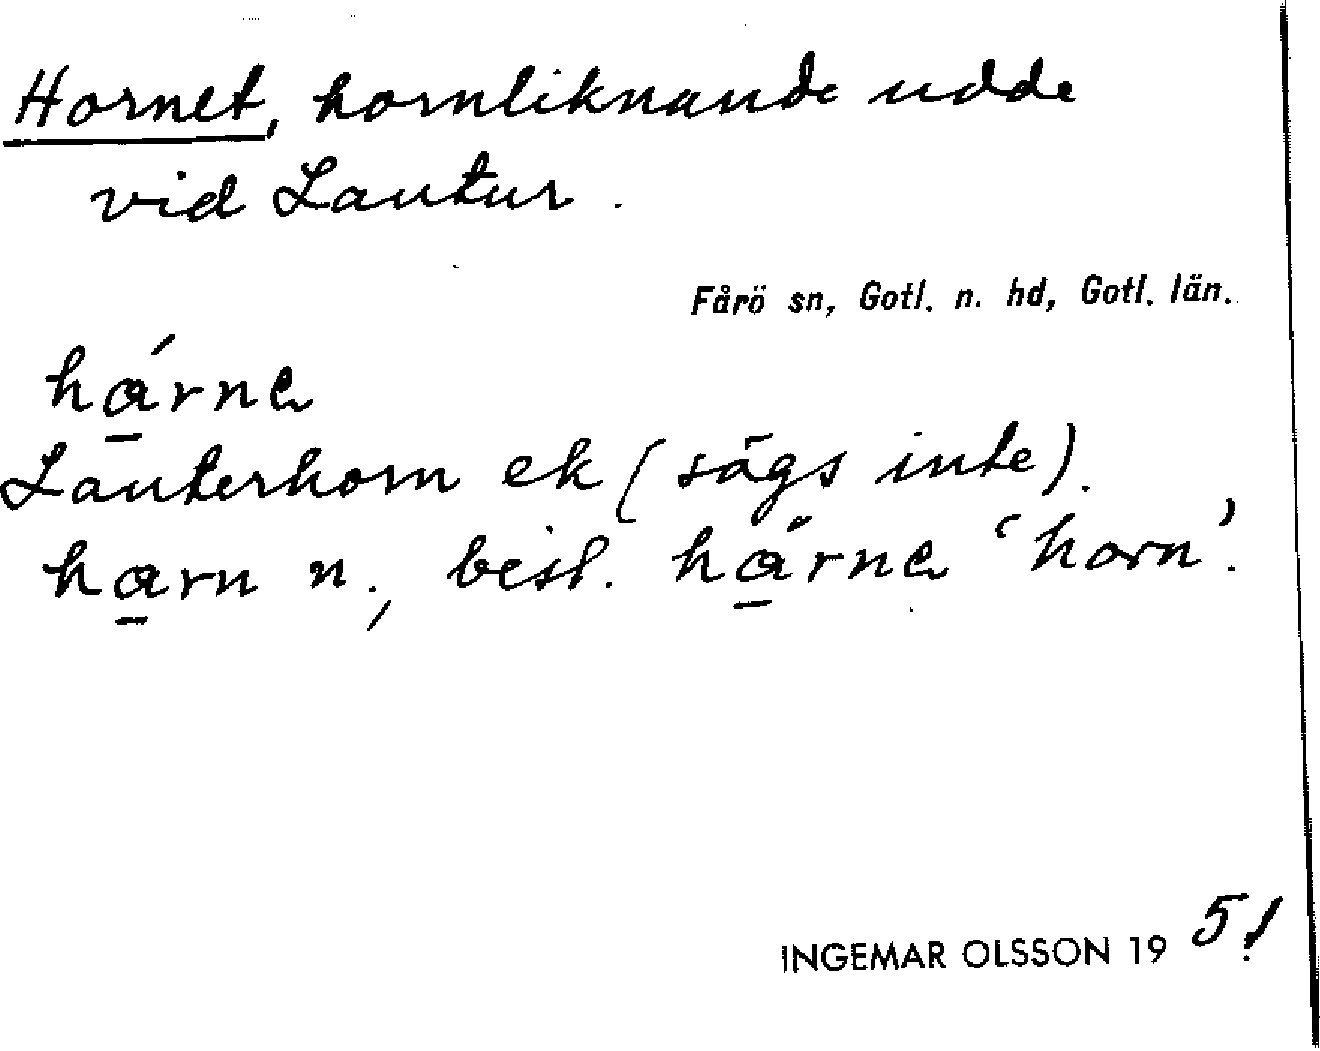 Hornet, hornliknande udde
vid Lautur.
Fårö sn, Gotl. n. hd, Gotl. län.
há̱rnɐ
Lauterhorn ek (sägs inte).
ha̱rn n., best. há̱rnɐ ‘horn’.
INGEMAR OLSSON 1951